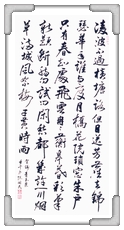 凌波不過橫塘路但目送芳塵去錦
瑟華年誰與度月橋花院瑣窗朱戶
只有春知處飛雲冉冉蘅皋暮彩筆
新題斷腸句試問閑愁都幾許一川烟
草滿城風絮梅子黃時雨